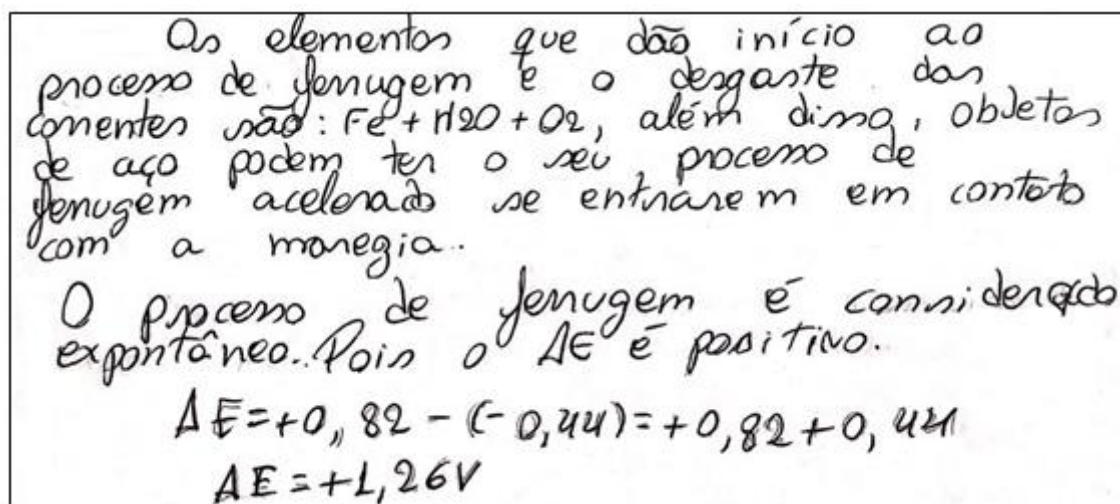 Os elementos que dão início ao
processo de ferrugem e o desgaste das
correntes são: Fe + H2O + O2, além disso, objetos
de aço podem ter o seu processo de
ferrugem acelerado se entrarem em contato
com a maregia.
O processo de ferrugem é considerado
expontâneo. Pois o ΔE é positivo.
ΔE = +0,82 - (-0,44) = +0,82 + 0,44
ΔE = +1,26V